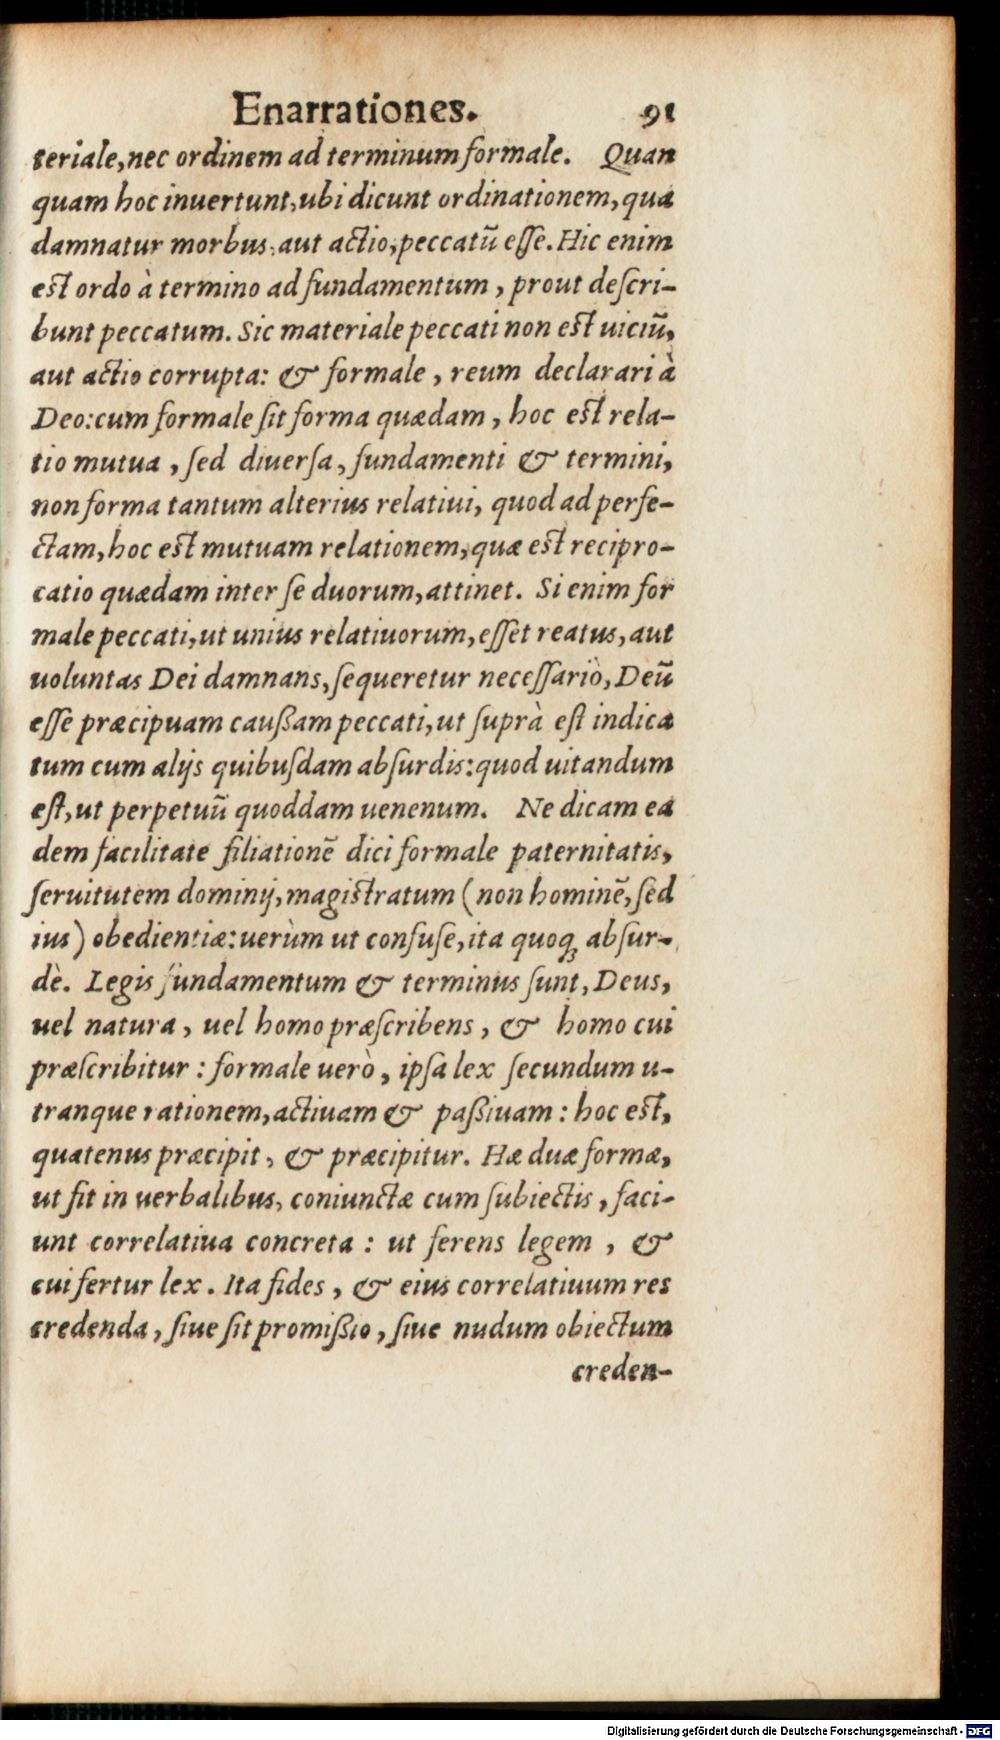 Enarrationes. 91
teriale, nec ordinem ad terminum formale. Quan
quam hoc inuertunt, ubi dicunt ordinationem, qua
damnatur morbus, aut actio, peccatū esse. Hic enim
est ordo à termino ad fundamentum, prout descri-
bunt peccatum. Sic materiale peccati non est uiciū,
aut actio corrupta: & formale, reum declarari à
Deo: cum formale sit forma quædam, hoc est rela-
tio mutua, sed diuersa, fundamenti & termini,
non forma tantum alterius relatiui, quod ad perfe-
ctam, hoc est mutuam relationem, quæ est recipro-
catio quædam inter se duorum, attinet. Si enim for
male peccati, ut unius relatiuorum, esset reatus, aut
uoluntas Dei damnans, sequeretur necessariò, Deū
esse præcipuam caußam peccati, ut suprà est indica
tum cum alijs quibusdam absurdis: quod uitandum
est, ut perpetuū quoddam uenenum. Ne dicam ea
dem facilitate filiationē dici formale paternitatis,
seruitutem dominij, magistratum (non hominē, sed
ius) obedientiæ: uerùm ut confuse, ita quoq; absur-
dè. Legis fundamentum & terminus sunt, Deus,
uel natura, uel homo præscribens, & homo cui
præscribitur: formale uerò, ipsa lex secundum u-
tranque rationem, actiuam & paßiuam: hoc est,
quatenus præcipit, & præcipitur. Hæ duæ formæ,
ut fit in uerbalibus, coniunctæ cum subiectis, faci-
unt correlatiua concreta: ut ferens legem, &
cui fertur lex. Ita fides, & eius correlatiuum res
credenda, siue sit promißio, siue nudum obiectum
creden-
Digitalisierung gefördert durch die Deutsche Forschungsgemeinschaft - DFG